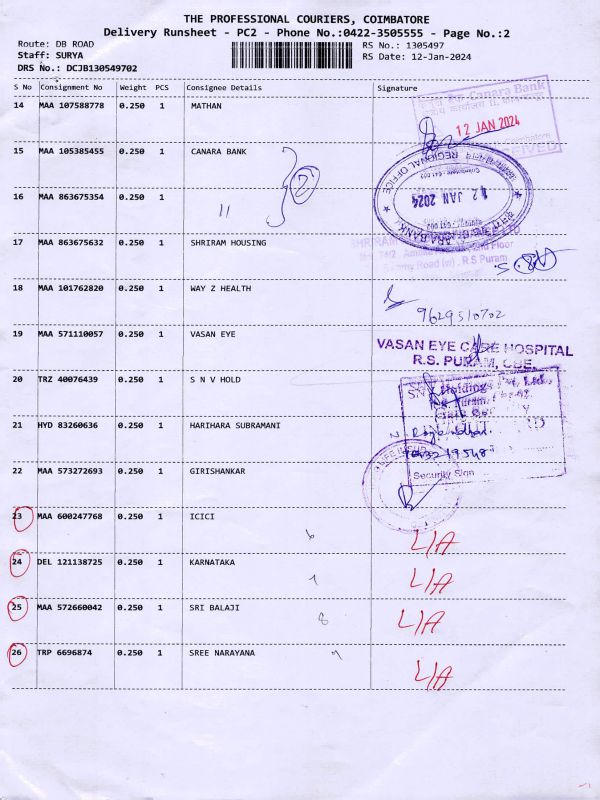 THE PROFESSIONAL COURIERS, COIMBATORE
Delivery Runsheet - PC2 - Phone No.:0422-3505555 - Page No.:2
Route: DB ROAD RS No.: 1305497
Staff: SURYA RS Date: 12-Jan-2024
DRS No.: DCJB130549702
S No Consignment No Weight PCS Consignee Details Signature
14 MAA 107588778 0.250 1 MATHAN
Canara Bank
12 JAN 2024
15 MAA 105385455 0.250 1 CANARA BANK
2
REGIONAL OFFICE
16 MAA 863675354 0.250 1 11
12 JAN 2024
17 MAA 863675632 0.250 1 SHRIRAM HOUSING
Floor
Road (w), R.S.Puram
18 MAA 101762820 0.250 1 WAY Z HEALTH
9629510702
19 MAA 571110057 0.250 1 VASAN EYE
VASAN EYE CARE HOSPITAL
R.S. PURAM, CBE.
20 TRZ 40076439 0.250 1 S N V HOLD
21 HYD 83260636 0.250 1 HARIHARA SUBRAMANI
22 MAA 573272693 0.250 1 GIRISHANKAR
Security Sign
23 MAA 600247768 0.250 1 ICICI
6 L/A
24 DEL 121138725 0.250 1 KARNATAKA
L/A
25 MAA 572660042 0.250 1 SRI BALAJI
8 L/A
26 TRP 6696874 0.250 1 SREE NARAYANA
L/A